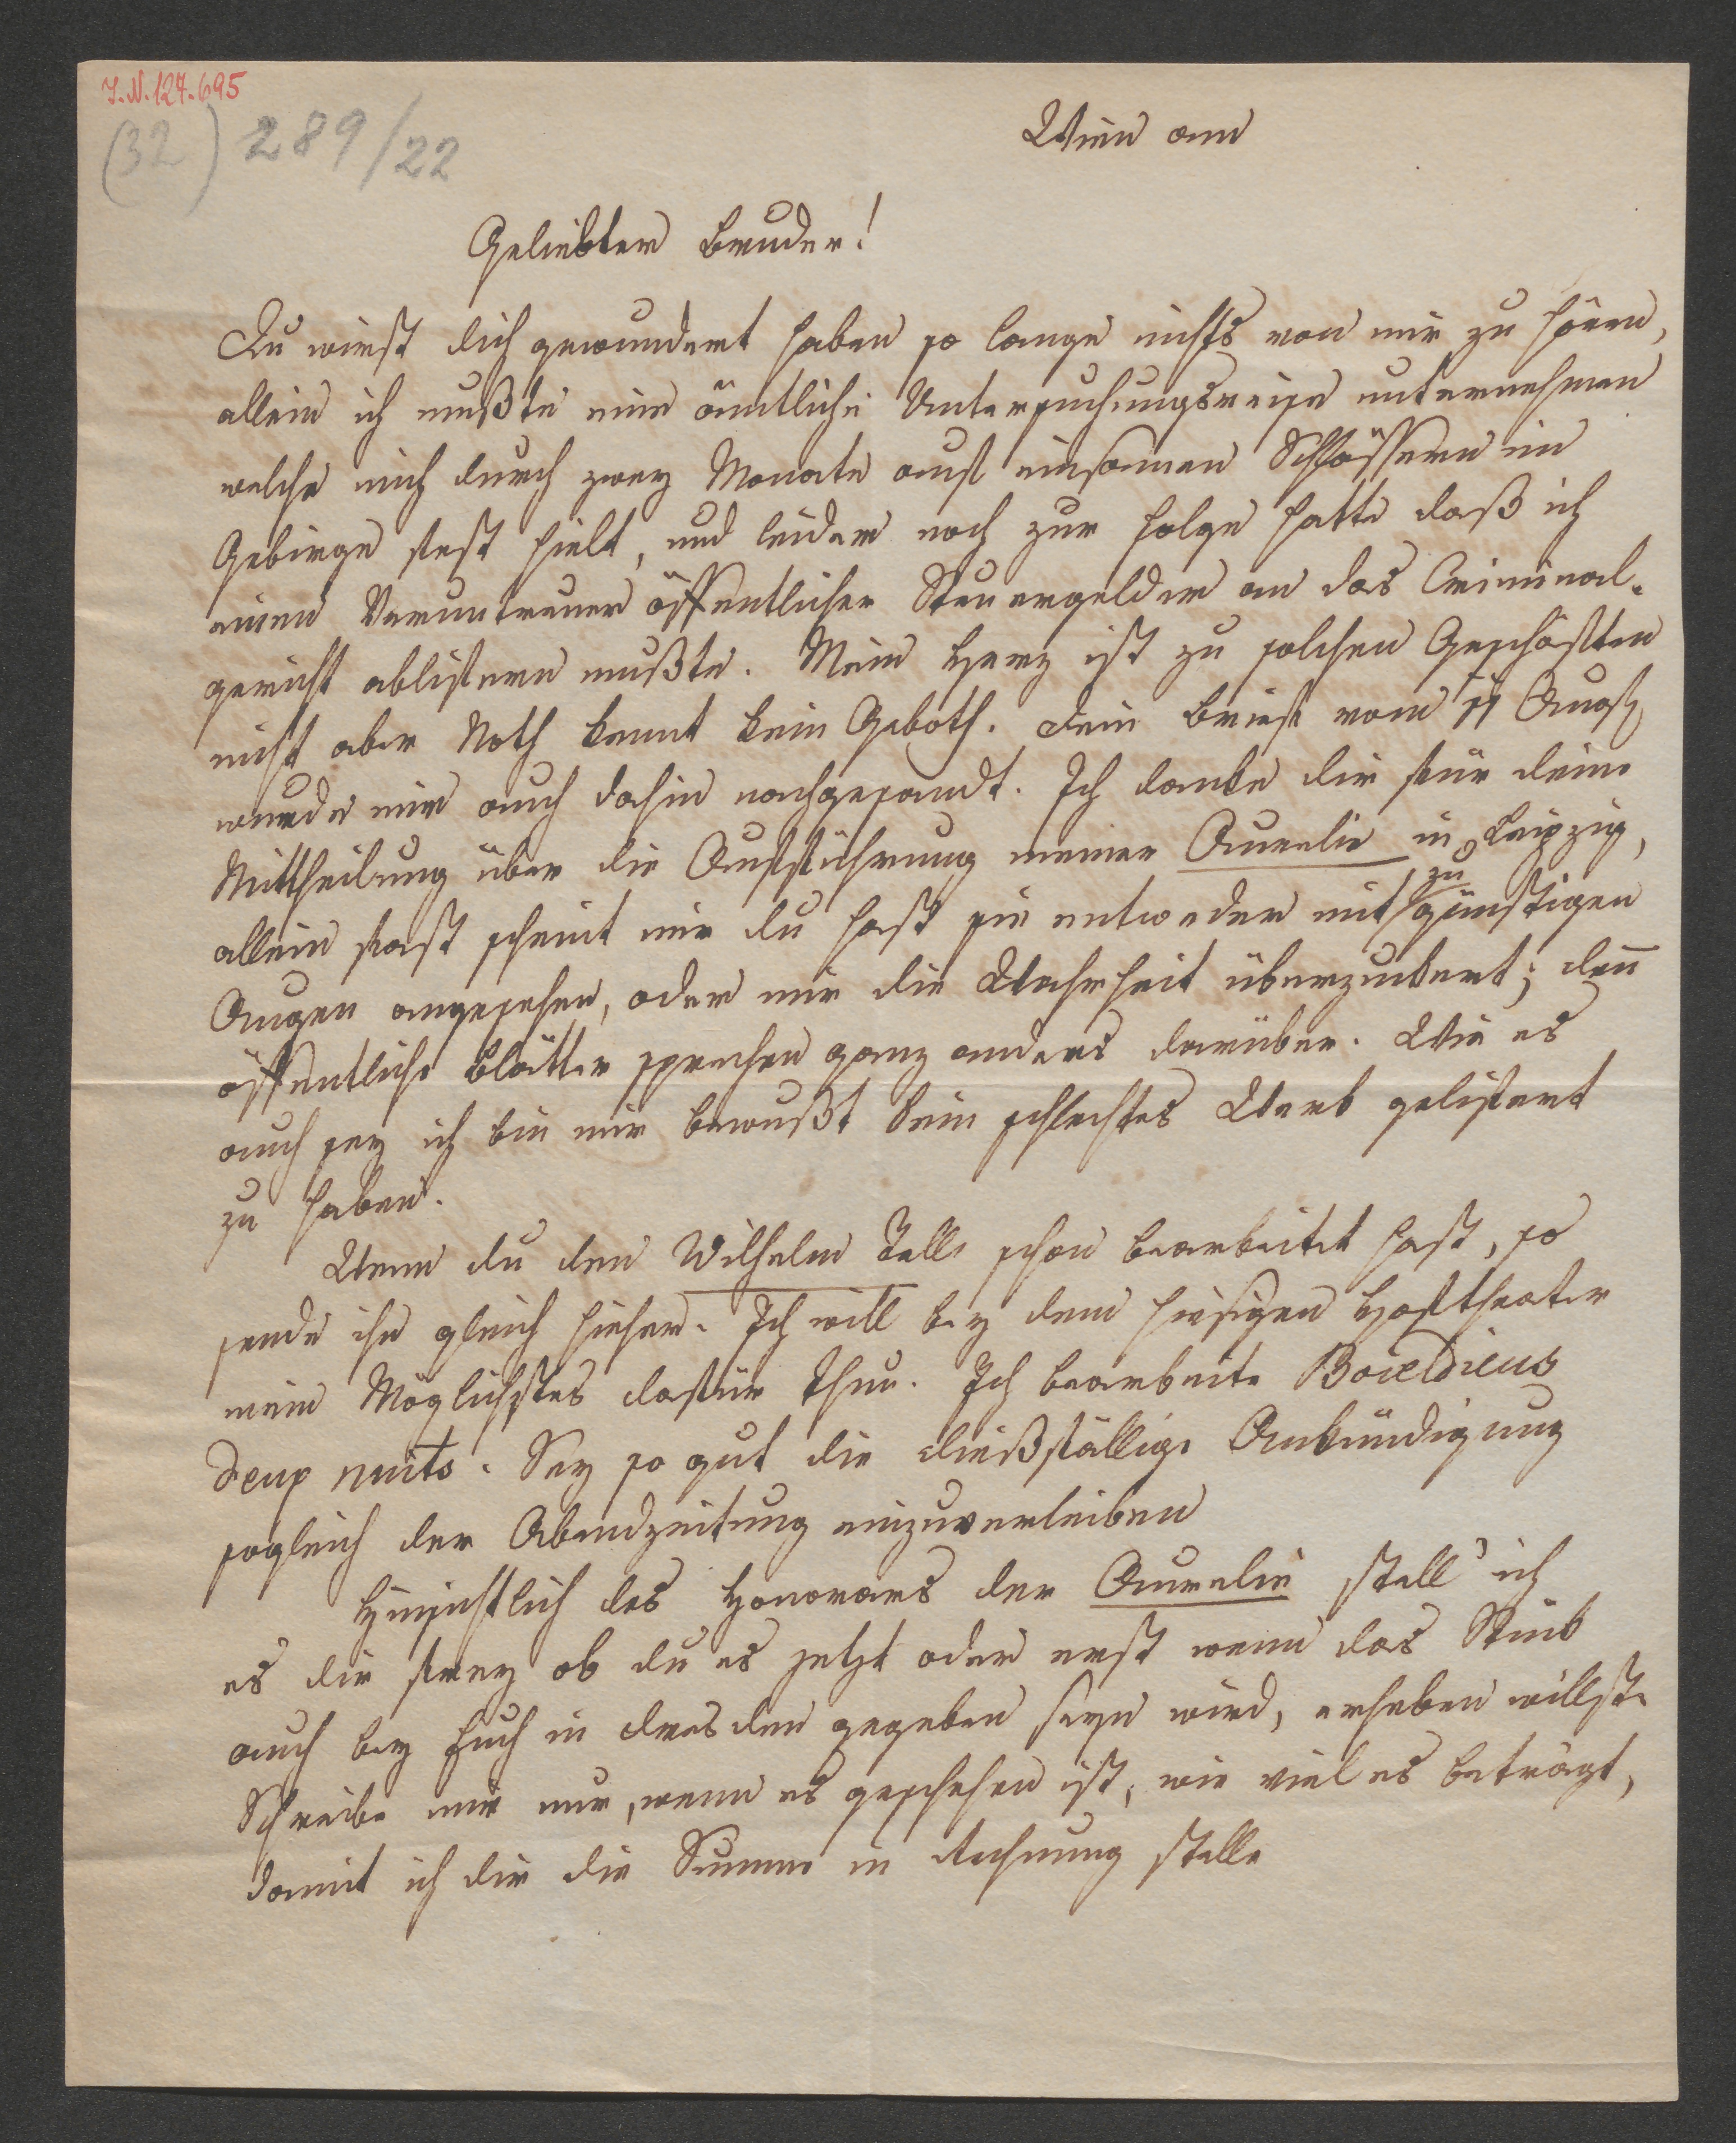 I.N. 127.695
(32) 289/22
Wien am
Geliebter Bruder!
Du wirst dich gewundert haben so lange nichts von mir zu hören,
allein ich mußte eine ämtliche Untersuchungsreise unternehmen
welche mich durch zwey Monate auf einsamen Schlössern im
Gebirge fest hielt, und leider noch zur Folge hatte daß ich
einen Veruntreuer öffentlicher Steuergelder an das Criminal-
gericht abliefern mußte. Mein Herz ist zu solchen Geschäften
nicht aber Noth kennt kein Geboth. Dein Brief vom 11 Augst
wurde mir auch dahin nachgesandt. Ich danke dir für deine
Mittheilung über die Aufführung meiner Aurelie in Leipzig,
allein fast scheint mir du hast sie entweder mit zu günstigen
Augen angesehen, oder mir die Wahrheit überzuckert; deñ
öffentliche Blätter sprechen ganz anders darüber. Wie es
auch sey ich bin mir bewußt kein schlechtes Werk geliefert
zu haben.
Wenn du den Wilhelm Tell schon bearbeitet hast, so
sende ihn gleich hieher. Ich will bey dem hiesigen Hoftheater
mein Möglichstes dafür thun. Ich bearbeite Boieldieus
deux nuits. Sey so gut die dießfällige Ankündigung
sogleich der Abendzeitung einzuverleiben
Hinsichtlich des Honorars der Aurelie stell' ich
es dir frey ob du es jetzt oder erst wenn das Stück
auch bey Euch in Dresden gegeben seyn wird, erheben willst.
Schreibe mir nur, wenn es geschehen ist, wie viel es beträgt,
damit ich dir die Summe in Rechnung stelle